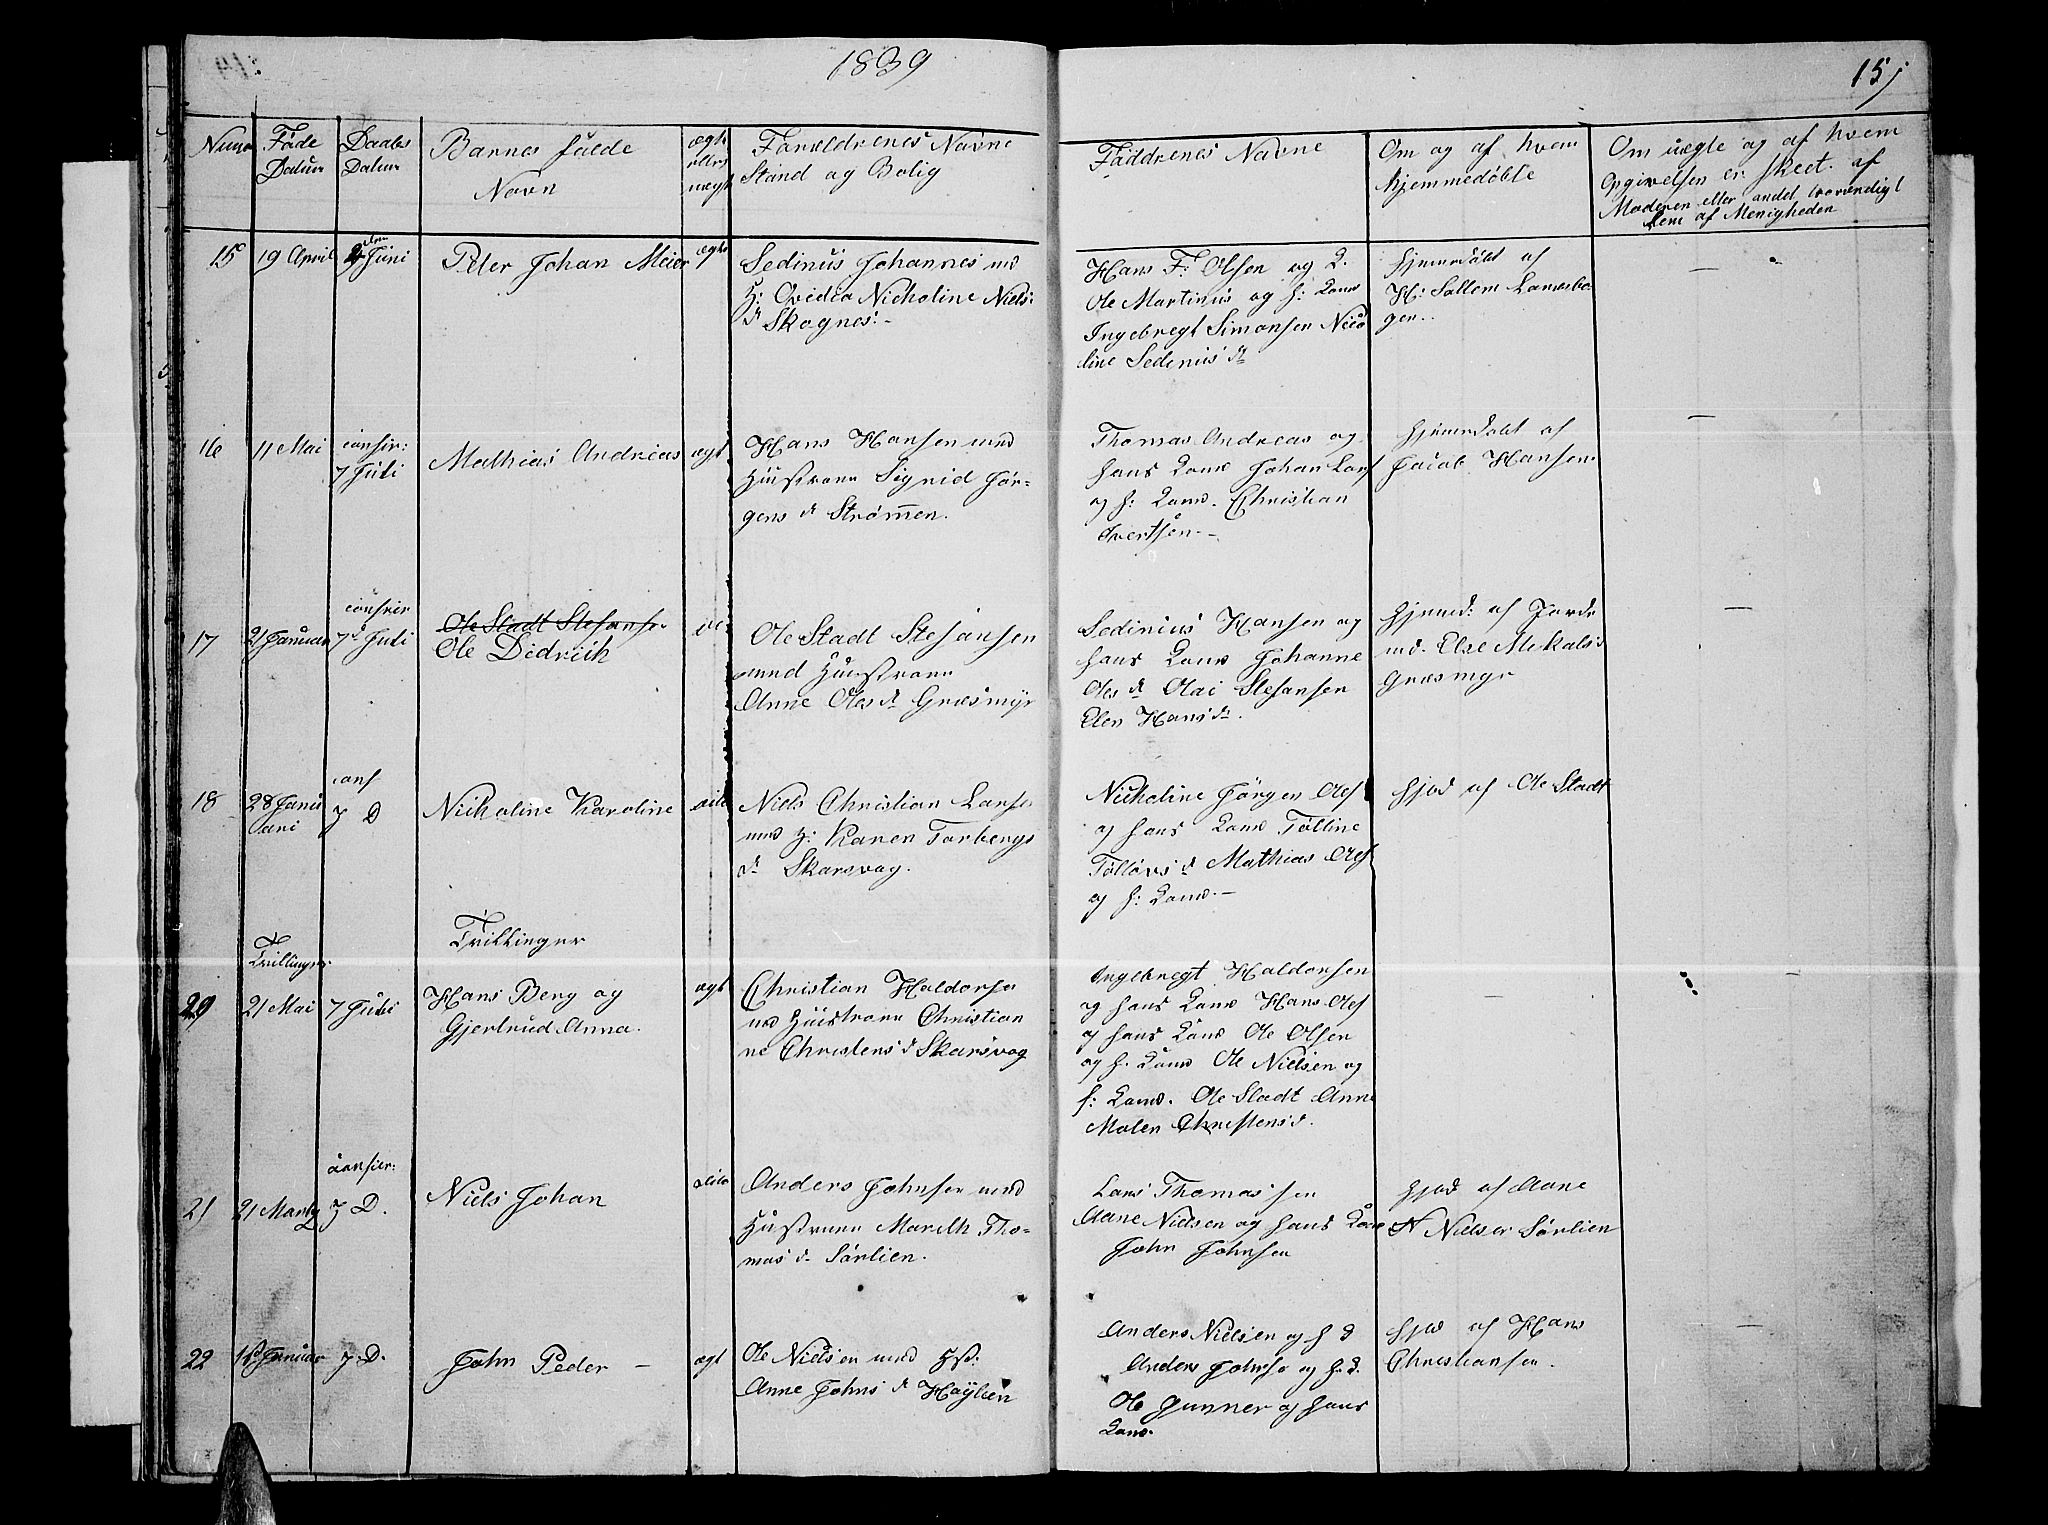 1839
15
Føde Datum
Daabs Datum
Barnes fulde Navn
Foræeldrenes Navne
Stand og Bolig
Faddrenes Navne
Om og af hvem
hjemmedøbte
Om uægte og af hvem
Opgivelsen er skeet. af
Moderen eller andet
af Menigheden
15 19 April Juni Peter Johan Meier ægte
Sedinus Johannes med
H: Ovidia Nicholine Niels:
d Skognes.
Hans F: Olsen og
Ole Martinus og h: Kone
Ingebregt Simonsen Nico
line Sedinius d
hjemdøbt af
H:
16 11 Mai 7 Juli Mathias Andreas ægt
Hans Hansen med
Hustrue Sigrid Jør-
gens d Strømen.
Thomas Andreas og
hans Kone Johan Lars
og h: Kone. Christian
Ivertsen.
hjemdøbt af
Jacob Hansen
17 21 Januar 7 Juli
Ole Stadt Stefanse
Ole Didrich
Ole Stadt Stefansen
med Hustrue
Anne Oles d Græsmyr
Sedinius Hansen og
hans Kone Johanne
Oles d Olai Stefansen
Elen Hans d.
hjemd: af Jorde
md. Else Mikals d
Græsmyr
18 28 7 D Nicholine Karoline
Niels Christian Larse
med H: Karen Torbergs
d Skarsvag.
Nicholine Jørgen Oles
og hans Kone
d Mathias Oles
og h: Kone.
hjed af Ole Stadt
Tvillinger
Tvillinger
21 Mai 7 Juli Hans Berg og
Gjertrud Anna.
ægt
Christian Haldorse
med Hustrue Christian
ne Christens d Skarsvag
Ingebregt Haldorsen
og hans Kone Hans Oles
og hans Kone Ole Olsen
og h. Kone Ole Nielsen og
h: Kone. Ole Stadt Anne
Malen Christens d.
21 21 Marty 7 D. Niels Johan
Anders Johnsen med
Hustrue Marith Tho-
mas d Sørlien.
Lars Thomas sen
Aane Nielsen og hans Kone
John Johnsen
hjed af Aane
N Nielsen Sørlien
22 Januar 7 D. John Peder - ægt
Ole Nielsen med Hst:
Anne Johns d Høylien
Anders Nielsen og h
Anders Johnse og h.
Ole Gunner og hans
Kone.
hjed af Hans
Christiansen.